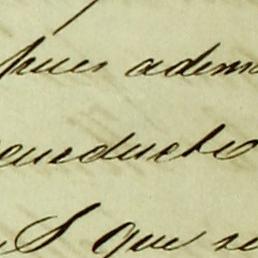 pues adem
cueducto
S que se